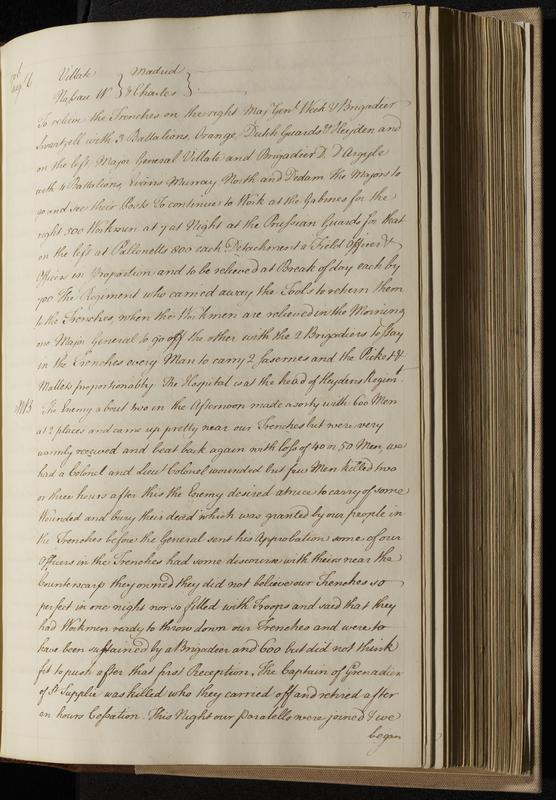 Aug 16 Villate } Madrid }
Nassau W } St Charles }
To relieve the Trenches on the right Maj Genl Week & Brigadier
Swartzell with 3 Battalions, Orange, Dutch Guards & Heyden and
on the left Major General Villate and Brigadier D. D'Argyle
with 4 Battalions, Evans Murray North and Dedam the Majors to
go and see their Posts To continue to Work at the Gabines for the
right 500 Workmen at 7 at Night at the Prussian Guards for that
on the left at Pallonetts 800 each Detachment a Field Officer &
Officers in Proportion and to be relieved at Break of day each by
700 The Regiment who carried away the Tools to return them
to the Trenches, when the Workmen are relieved in the Morning
one Major General to go off the other with the 2 Brigadiers to stay
in the Trenches every Man to carry 2 fasernes and the Picket &
Mallets proportionably. The Hospital is at the head of Heydens Regimt.
MB The Enemy about two in the Afternoon made a sorty with 600 Men
at 2 places and came up pretty near our Trenches but were very
warmly received and beat back again with loss of 40 or 50 Men, we
had a Colonel and Lieut Colonel wounded but few Men killed two
or three hours after this the Enemy desired a truce to carry of some
Wounded and bury their dead which was granted by our people in
the Trenches before the General sent his Approbation some of our
Officers in the Trenches had some discourse with theirs near the
Counterscarp they owned they did not believe our Trenches so
perfect in one night nor so filled with Troops and said that they
had Workmen ready to throw down our Trenches and were to
have been sustained by a Brigadier and 600 but did not think
fit to push after that first Reception, The Captain of Grenadiers
of St Supplie was killed who they carried off and retired after
an hours Cessation. This Night our Paralells were joined & we
began